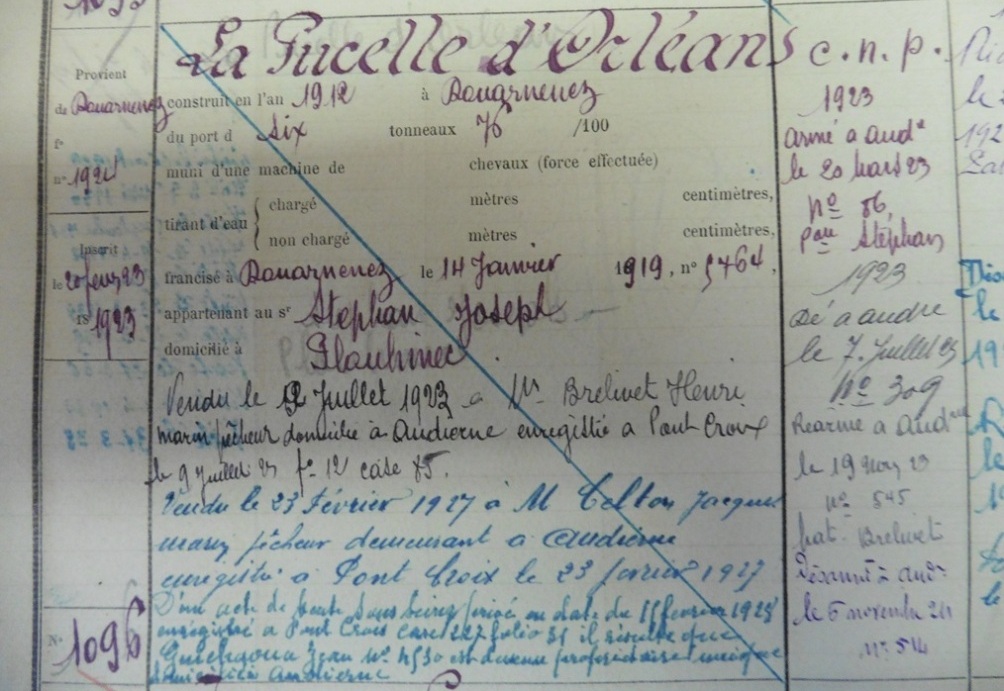 La Pucelle d'Orléans
Provient
de Douarnenez
f°
n° 1921
Inscrit
le 20 fevr 23
1923
N° 1096
construit en l'an 1912 à Douarnenez
du port d Six tonneaux 76 /100
muni d'une machine de chevaux (force effectuée)
tirant d'eau { chargé mètres centimètres,
non chargé mètres centimètres,
francisé à Douarnenez le 14 Janvier 1919, n° 5464,
appartenant au sr Stephan Joseph
domicilié à Plouhinec
Vendu le Juillet 1923 a Mr Brelivet Henri
marin pêcheur domicilié à Audierne enregistré a Pont Croix
le 9 Juillet 23 f° 12 case 85.
Vendu le 23 Février 1927 à M Celton Jacques
marin pêcheur demeurant a Audierne
enregistré a Pont Croix le 23 fevrier 1927
D'un acte de vente sous seing privé en date du 11 fevrier 1928
enregistré a Pont Croix case 227 folio 31 il résulte que
Jean N° 4530 est devenu propriétaire unique
domicilié Audierne
c. n. p.
1923
armé a Aude
le 20 Mars 23
n° 86,
pon Stéphan
1923
Dé a Audre
le 7. Juillet 23
N° 309
Réarmé a Aud
le 19 23
n° 545
pat. Brelivet
Désarmé à Aud
le 6 novembre 24
n° 514